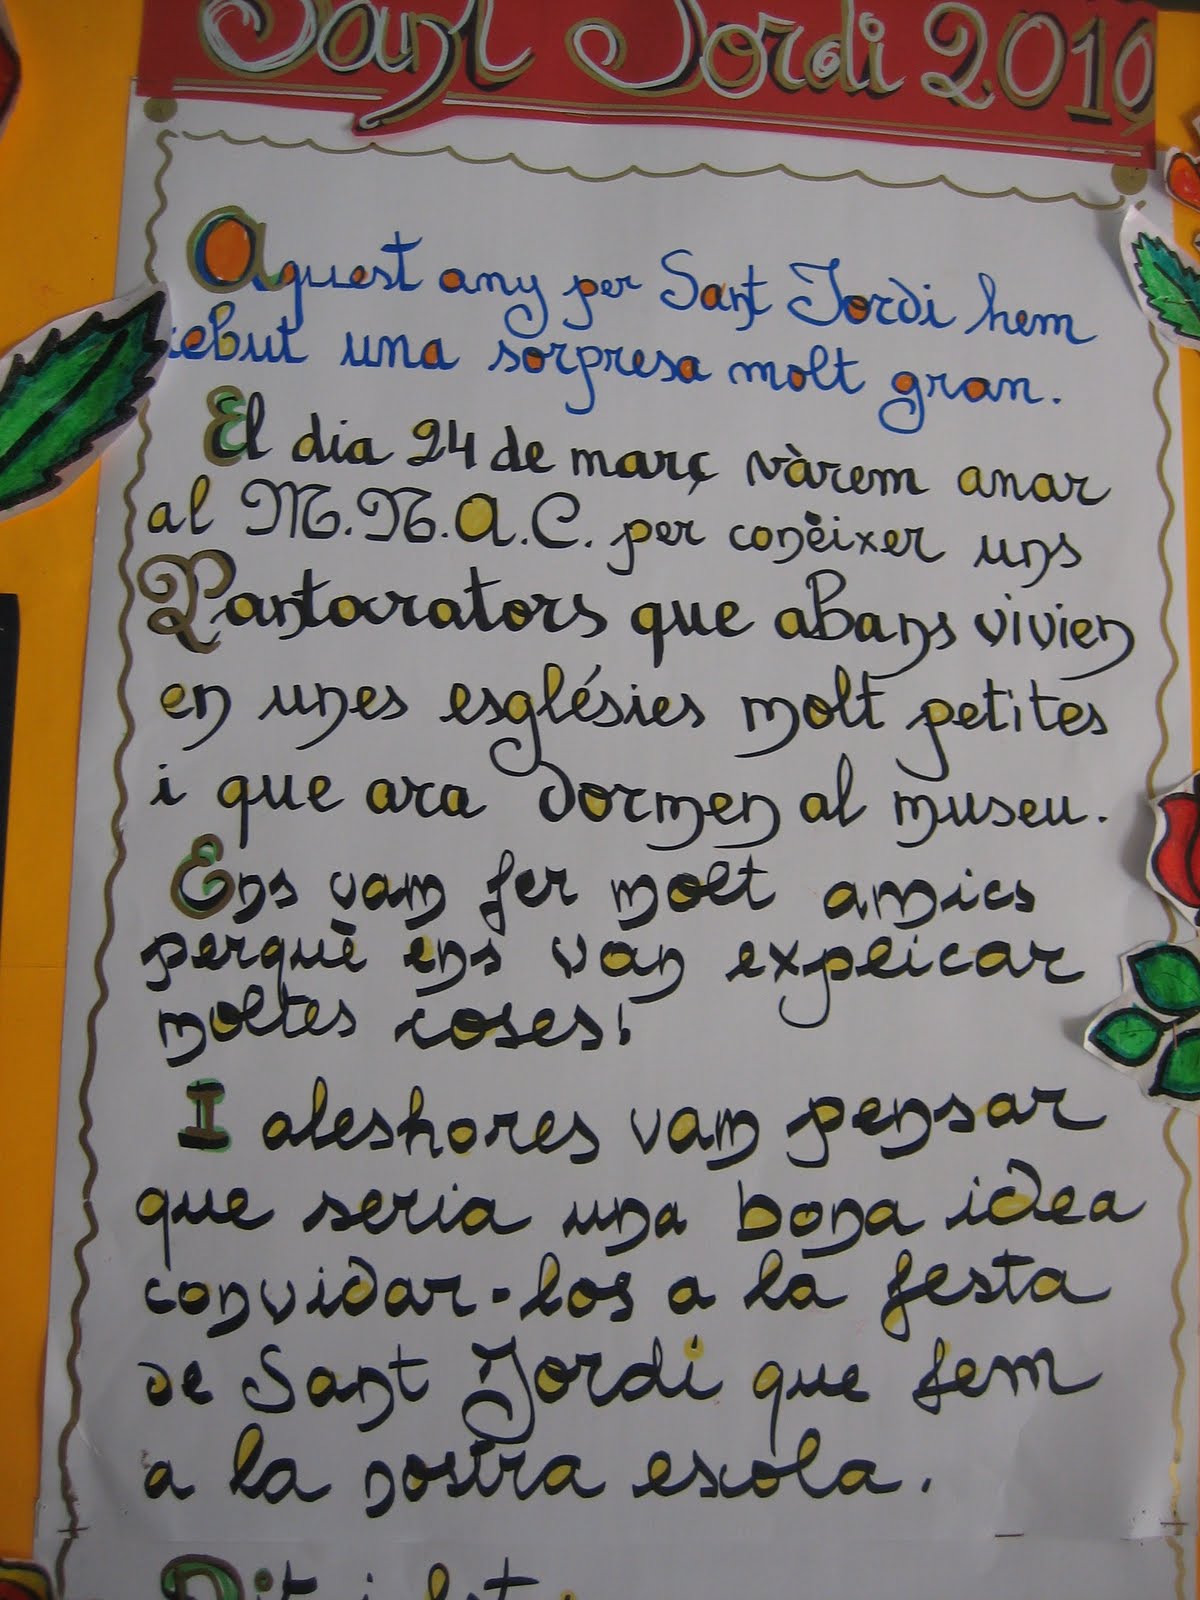 Sant Jordi 2010
Aquest any per Sant Jordi hem
rebut una sorpresa molt gran.
El dia 24 de març vàrem anar
al M.N.A.C. per conèixer uns
Pantocrators que abans vivien
en unes esglésies molt petites
i que ara dormen al museu.
Ens vam fer molt amics
perquè ens van explicar
moltes coses!
I aleshores vam pensar
que seria una bona idea
convidar-los a la festa
de Sant Jordi que fem
a la nostra escola.
Dit i fet